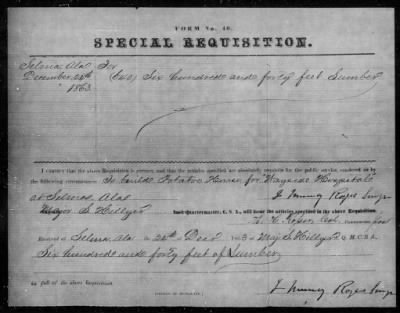 FORM No. 40.
SPECIAL REQUISITION.
Selma, Ala For
December 24th (640) Six hundred and forty feet Lumber
1863
I CERTIFY that the above Requisition is correct, and that the articles specified are absolutely requisite for the public service, rendered so by the
following circumstances: To build Potatoe House for Wayside Hospital
at Selma, Ala
Major S. Hillyer Quartermaster, C. S. A., will issue the articles specified in the above Requisition.
Commanding Post
RECEIVED at Selma Ala 24th Decr 1863 of Maj S. Hillyer Q. M. C. S. A.
Six hundred and forty feet of Lumber
in full of the above Requisition.
[SIGNED IN DUPLICATE.]